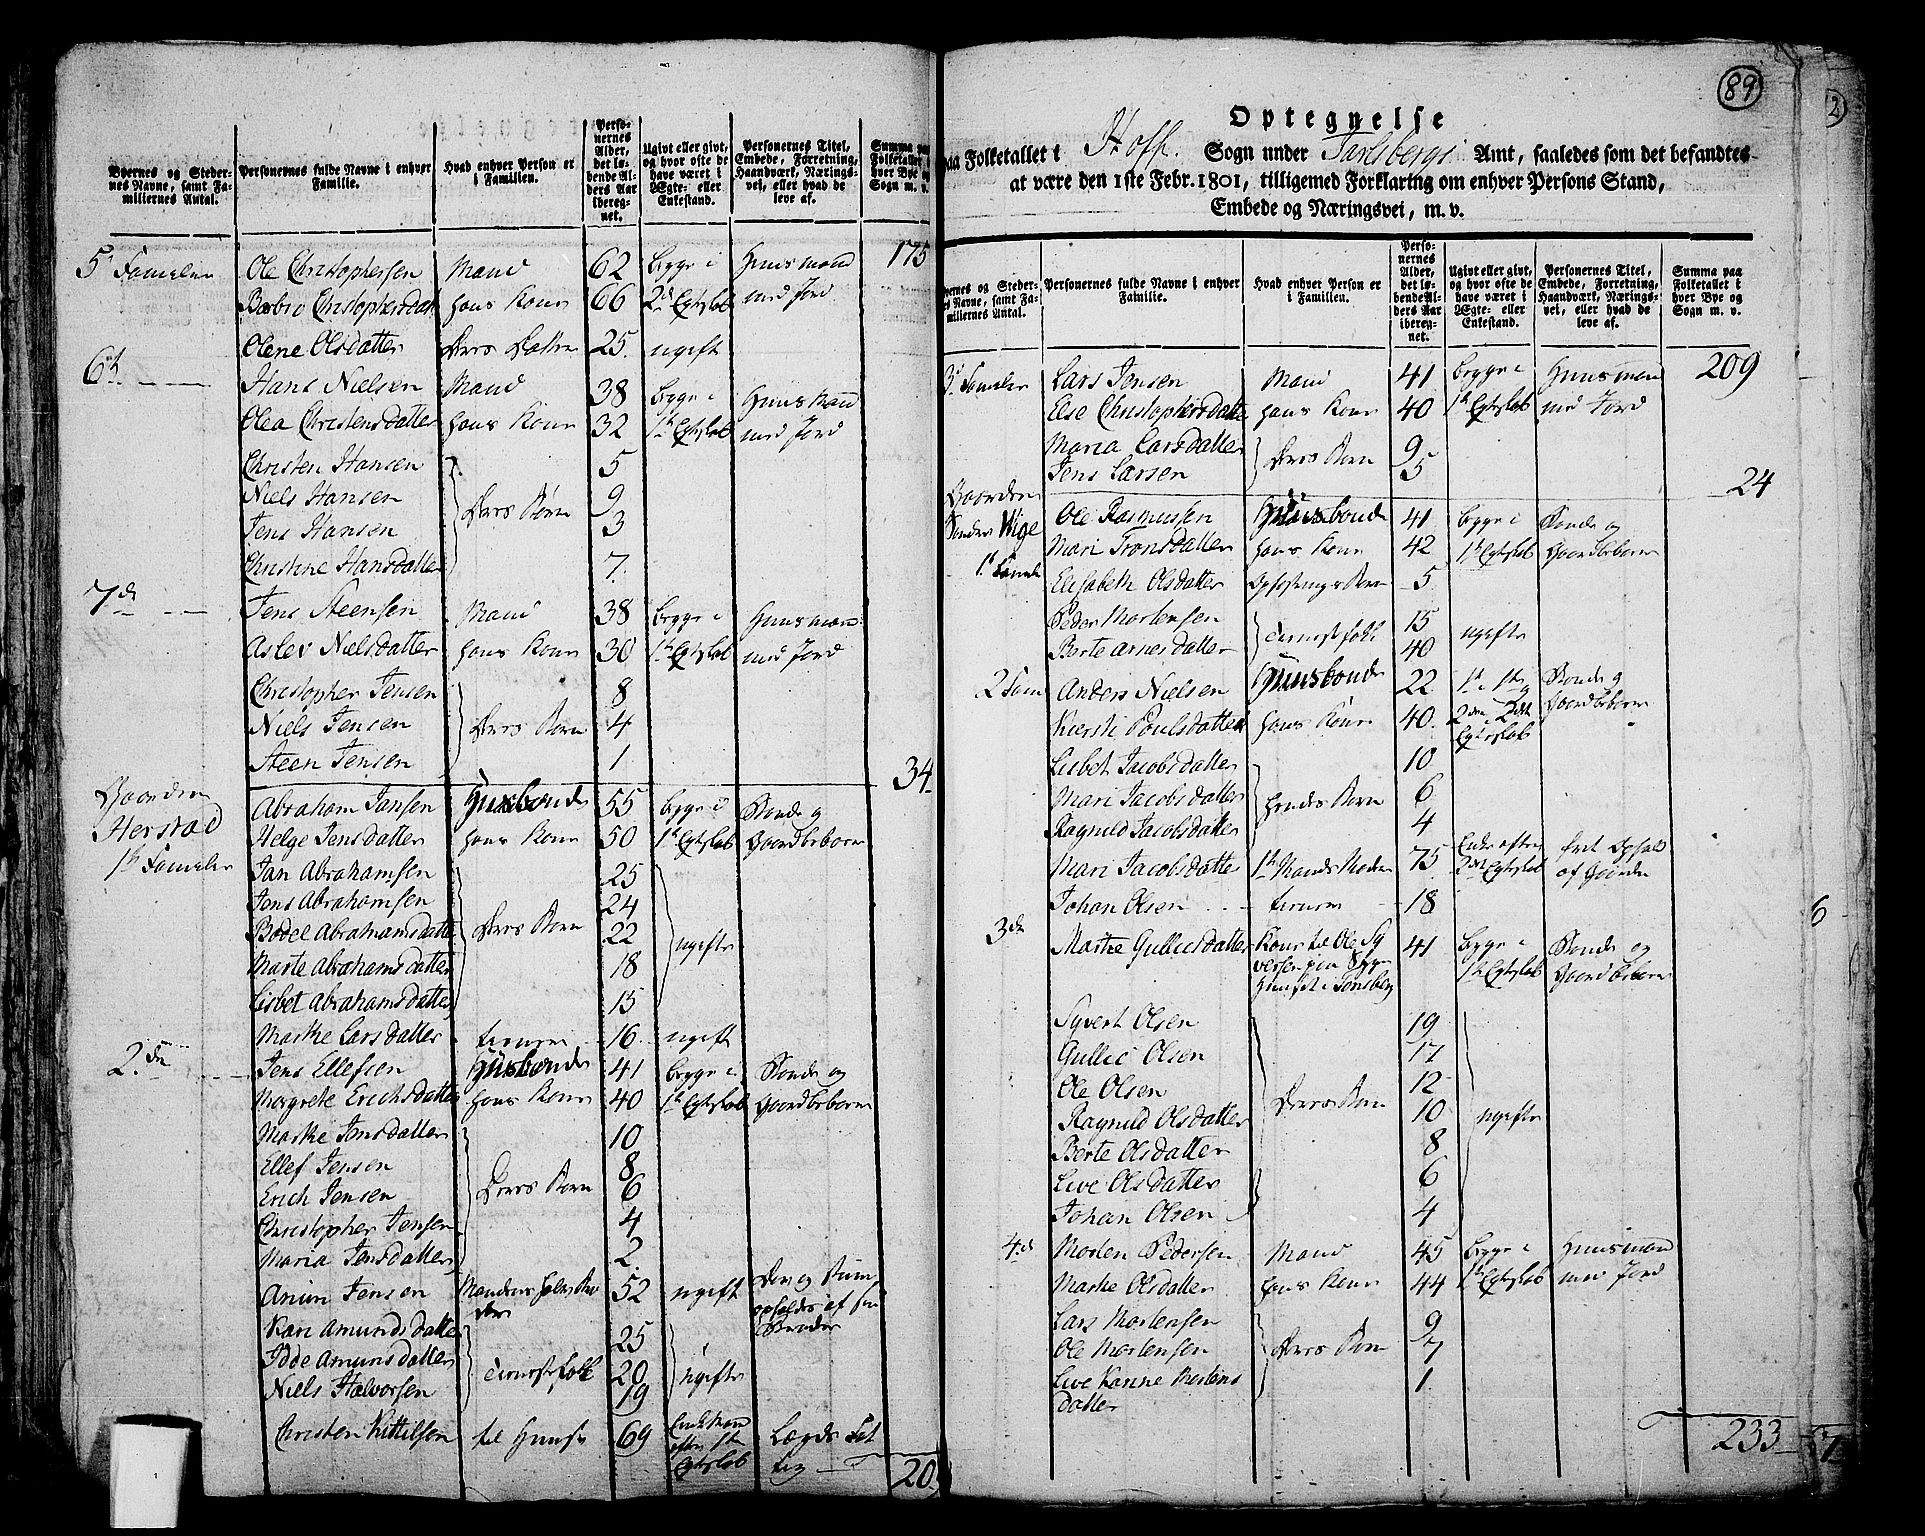 Byernes og Steder-
nes Navne, samt Fa-
miliernes Antal.
Personernes fulde Navne i enhver
Familie.
Hvad enhver Person er
i Familien.
Perso-
nernes
Alder,
det lø-
bende Al-
ders Aar
ibereg-
net.
Ugivt eller givt,
og hvor ofte de
have været i
Ægte- eller
Enkestand.
Personernes Titel,
Embede, Forretning,
Haandværk, Nærings-
vei, eller hvad de
leve af.
Summa paa
Folketallet i
hver Bye og
Sogn m. v.
175
5' Familier Ole Christophersen Mand 62 begge i Huusmand
Barbro Christophersdatt hans Kone 66 2d Egteskab med Jord
Olene Olsdatter Deres Datter 25 ugift
6th Hans Nielsen Mand 38 begge i Huusmand
Olea Christensdatter hans Kone 32 1th Egteskab med Jord
Christen Hansen 5
Niels Hansen Deres Børn 9
Jens Hansen 3
Christine Hansdatter 7
7de Jens Steensen Mand 38 begge i Huusmand
Aslev Nielsdatter hans Kone 30 1th Egteskab med Jord
Christopher Jensen 8
Niels Jensen Deres Børn 4
Steen Jensen 1
34
Gaarden Abraham Jansen Huusbonde 55 begge i Bonde og
Herstad Helge Jensdatter hans Kone 50 1th Egteskab Gaardbeboere
1th Familie Jan Abrahamsen 25
Jens Abrahamsen 24
Bodel Abrahamsdatter Deres Børn 22 ugifte
Marte Abrahamsdatter 18
Lisbet Abrahamsdatter 15
Marthe Larsdatter tieneste 16 ugift
2den Jens Ellefsen Huusbonde 41 begge i Bonde og
Margrete Erichsdatter hans Kone 40 1th Egteskab Gaardbeboere
Marthe Jensdatter 10
Ellef Jensen 8
Erich Jensen Deres Børn 6
Christopher Jensen 4
Maria Jensdatter 2
Anun Jensen Mandens 52 ugift
opholdes af sin
Broder
Kari Amundsdatter 25
Idde Amunsdatter tienestefolk 20 ugifte
Niels Halvorsen 19
Christen Kittilsen til Huuse 69 Enkemand Lægds Fat
efter 1ste tig
Egteskab
20
89
2
Optegnelse
paa Folketallet i Hoff. Sogn under Jarlsbergs Amt, saaledes som det befandtes
at være den 1ste Febr. 1801, tilligemed Forklaring om enhver Persons Stand,
Embede og Næringsvei, m. v.
Byernes og Steder-
nes Navne, samt Fa-
miliernes Antal.
Personernes fulde Navne i enhver
Familie.
Hvad enhver Person er
i Familien.
Perso-
nernes
Alder,
det lø-
bende Al-
ders Aar
ibereg-
net.
Ugivt eller givt,
og hvor ofte de
have været i
Ægte- eller
Enkestand.
Personernes Titel,
Embede, Forretning,
Haandværk, Nærings-
vei, eller hvad de
leve af.
Summa paa
Folketallet i
hver Bye og
Sogn m. v.
3' Familier Lars Jensen Mand 41 begge i Huusmand 209
Else Christophersdatter hans Kone 40 1th Egteskab med Jord
Maria Larsdatter Deres Børn 9
Jens Larsen 5
24
Gaarden
Sonder Wige Ole Rasmussen Huusbonde 41 begge i Bonde og
Mari Tronsdatter hans Kone 42 1th Egteskab Gaardbeboere
1' Familie Elisabeth Olsdatter Opfostrings Barn 5
Peder Mortensen tienestefolk 15 ugifte
Berte Arnesdatter 40
2 Fam Anders Nielsen Huusbonde 22 1th Bonde og
Kiersti Poulsdatter hans Kone 40 2den 2det Gaardbeboere
Egteskab
Lisbet Jacobsdatter 10
Mari Jacobsdatter hendes Børn 6
Ragnild Jacobsdatter 4
Mari Jacobsdatter Mands Moder 75 Enke efter
2det Egteskab af
Johan Olsen tienere 18
3de Marthe Gulliesdatter Kone til Ole Sy 41 begge i Bonde og
versen 1th Egteskab Gaardbeboere
Huuset i Tønsberg
Syvert Olsen 19
Gullic Olsen 17
Ole Olsen 12
Ragnild Olsdatter Deres Børn 10 ugifte
Berte Olsdatter 8
Live Olsdatter 6
Johan Olsen 4
4de Morten Pedersen Mand 45 begge i Huusmand
Marthe Olsdatter hans Kone 44 1th Egteskab med Jord
Lars Mortensen 9
Ole Mortensen Deres Børn 7
Live Karine Mortens 1
datter
233
6